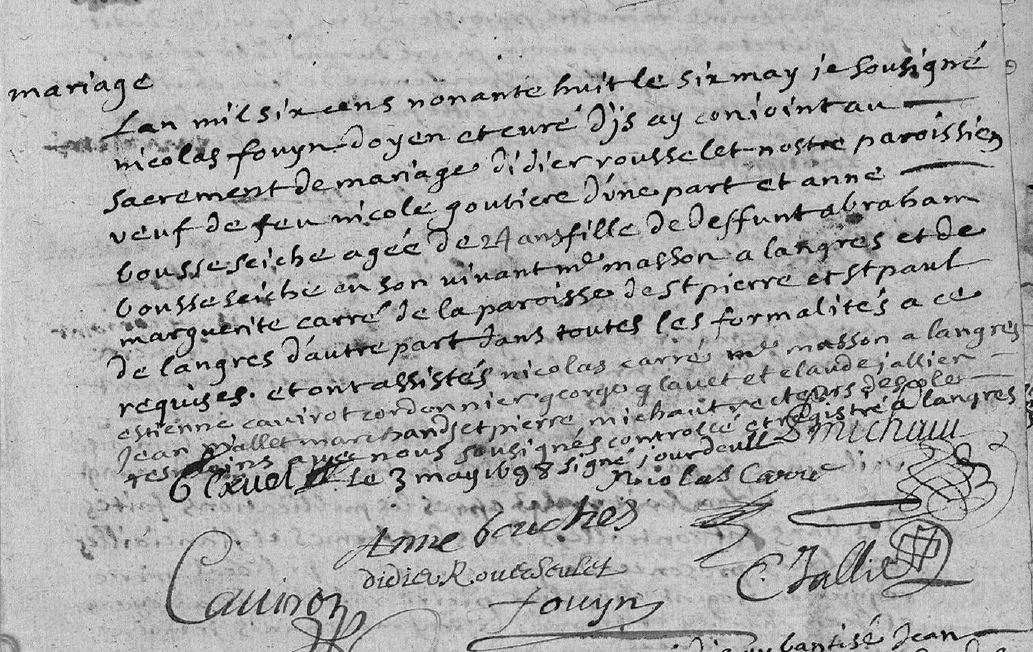 mariage
Lan mil six cens nonante huit le six may je sousigné
nicolas fouyn doyen et curé d'js ay conioint au
sacrement de mariage didier rousselet nostre paroissien
veuf de feu nicole goutiere d'une part et anne
bousseseiche agée de 24 ans fille de deffunt abraham
bousseseiche en son vivant me masson a langres et de
marguerite carré de la paroisse de st pierre et st paul
de langres d'autre part dans toutes les formalités a ce
requises. et ont assistés nicolas carré me masson a langres
estienne cavirot cordonnier george clavet et claude jallier
jean mallet marchands et pierre michaut recteurs descole
avec nous sousignés controllé et registré a langres
le 3 may 1698 signé jourdeuil
P michaut
Nicolas Carré
Anne bouches
didier Rouseulet
C Jallier
Caviron
fouyn
baptisé Jean